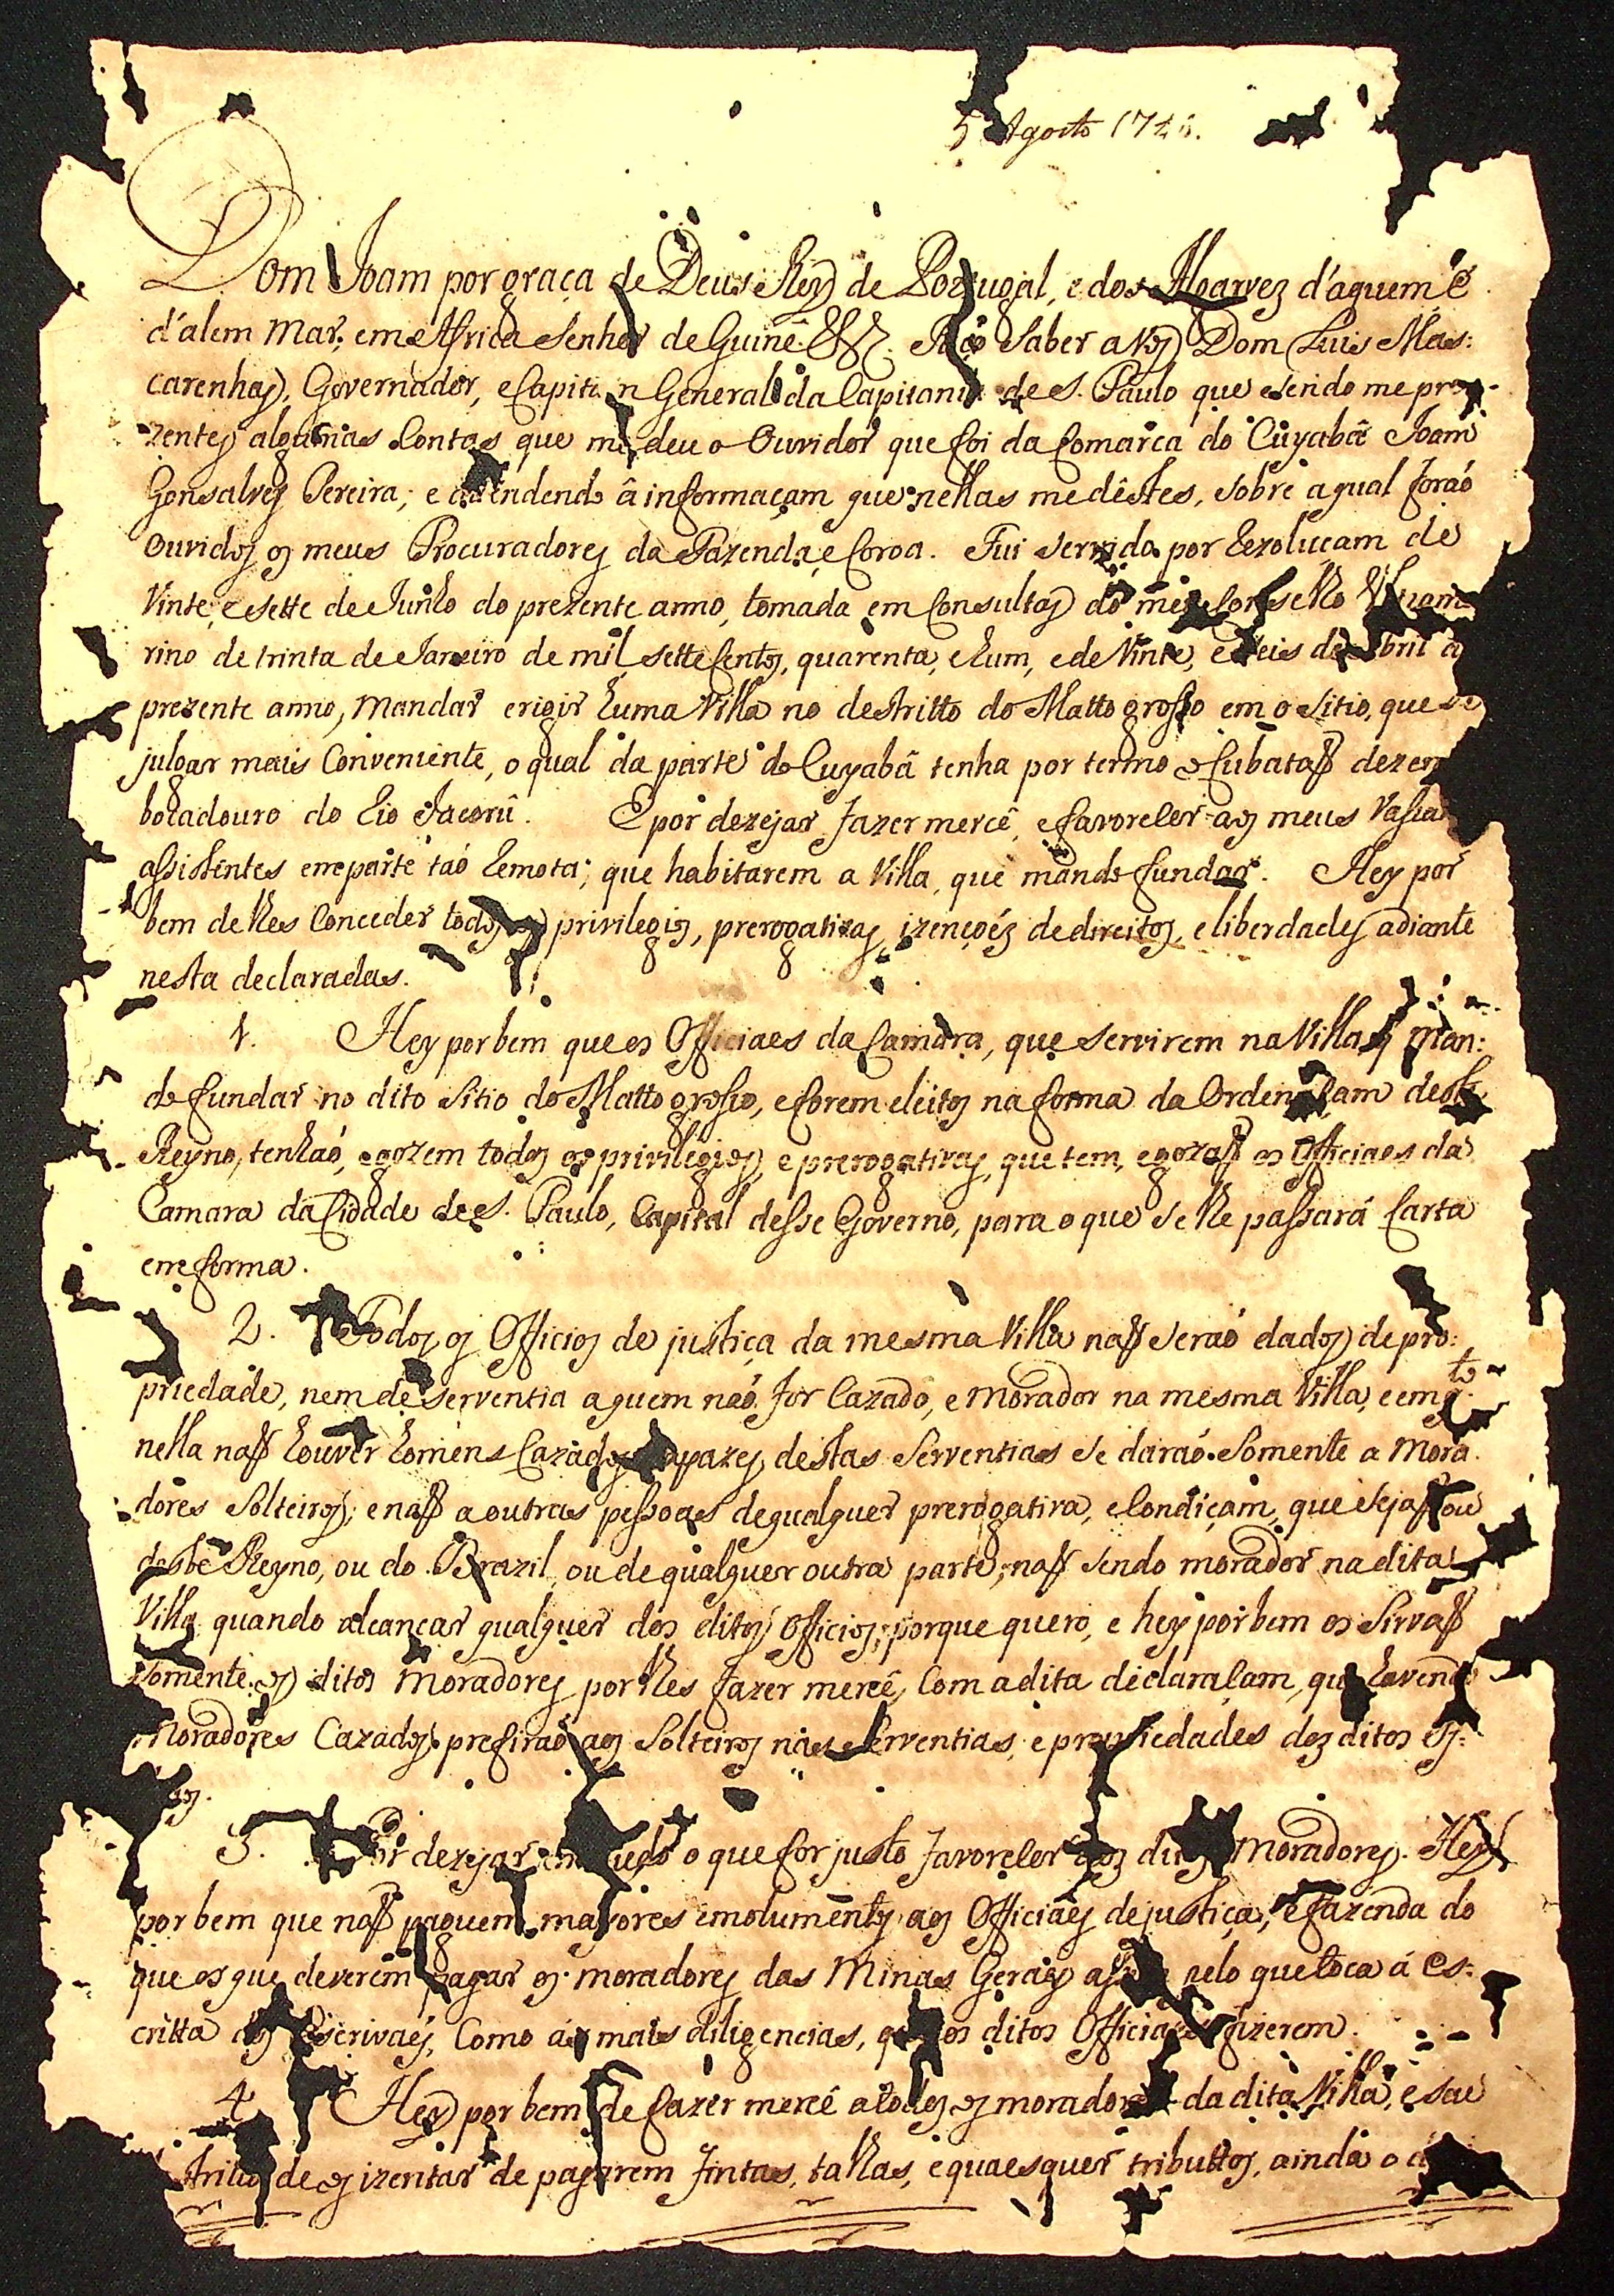 5 Agosto 174
Dom Joam por graça de Deus Rey de Portugal, e dos Algarvez d'aquem e
d'alem Mar, em Africa Senhor de Guinê &ª. Faço Saber a Vos Dom Luis Mas:
carenhas, Governador, e Capitam General da Capitania de S. Paulo que sendo me pre
zentes algumas Contas que me deu o Ouvidor que foi da Comarca do Cuyabâ Joam
Gonsalves Pereira; e attendendo â informaçam que nellas me dêstes, sobre a qual foraó
Ouvidos os meus Procuradores da Fazenda, e Coroa. Fui servido por Rezoluçam de
Vinte, e Sette de Junho do prezente anno, tomada em Consultas do meu Conselho Ultrama
rino de trinta de Janeiro de mil sette Centos, quarenta, e hum, e de Vinte, e seis de Abril
prezente anno, Mandar erigir huma Villa no destritto do Matto grosso em o sitio, que se
julgar mais Conveniente, o qual da parte do Cuyabâ tenha por termo o Cubataõ dezem
bocadouro do Rio Jacorû. E por dezejar fazer mercê, e favorecer aos meus Vassal
assistentes em parte taó remota; que habitarem a Villa, que mando fundar. Hey por
bem de lhes Conceder todos os privilegios, prerogativas, izençoés de direitos, e liberdades adiante
nesta declaradas.
1. Hey por bem que os Officiaes da Camara, que servirem na Villa q̃ man:
do fundar no dito sitio do Matto grosso, e forem eleitos na forma da Ordenaçam deste
Reyno, tenhaó, e gozem todos os privilégios, e prerogativas, que tem, e gozaõ os Officiaes da
Camara da Cidade de S. Paulo, Capital desse Governo, para o que se lhe passará Carta
em forma.
2. Todos os Officios de justiça da mesma Villa naõ seraó dados de pro:
priedade, nem de serventia a quem naó for Cazado, e morador na mesma Villa, e em q.to
nella naõ houver homens Cazados Capazes destas Serventias se daraó Somente a Mora
dores Solteiros; e naõ a outras pessoas de qualquer prerogativa, e Condiçam, que sejaõ ou
deste Reyno, ou do Brazil, ou de qualquer outra parte, naõ sendo morador na dita
Villa quando alcançar qualquer dos ditos Officios, porque quero, e hey por bem os Sirvaõ
somente os ditos Moradores por lhes fazer mercê, Com a dita declaraçam, que havendo
Moradores Cazados prefiraó aos Solteiros nas Serventias, e propriedades dos ditos Of:
ios.
3. Por dezejar em tudo o que for justo favorecer aos ditos Moradores. Hey
por bem que naõ paguem mayores emolumentos aos Officiaes de justiça, e fazenda do
que os que deverem pagar os moradores das Minas Geraes assim pelo que toca á es:
critta dos Escrivaés, Como ás mais diligencias, que os ditos Officiaes fizerem.
4. Hey por bem de fazer mercê a todos os moradores da dita Villa, e seu
tritto de os izentar de pagarem fintas, talhas, e quaesquer tributtos, ainda o